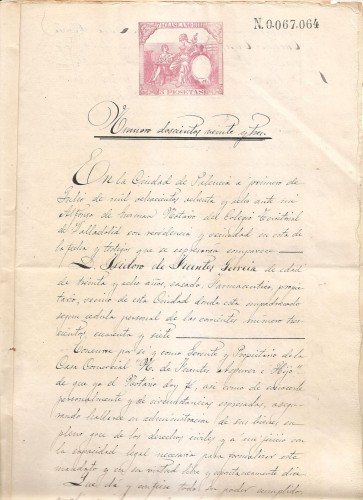 N.0.067.064
3 PESETAS
Numero doscientos veinte y tres.
En la Ciudad de Palencia a primero de
Julio de mil ochocientos ochenta y ocho ante mi
Alfonso de Guzman Notario del Colegio Territorial
de Valladolid con residencia y vecindad en esta de
la fecha y testigos que se expresarán comparece
D. Isidoro de Fuentes Garcia de edad
de treinta y ocho años, casado, Farmaceutico, propie-
tario, vecino de esta Ciudad donde esta empadronado
segun cedula personal de las corrientes numero tres-
cientos, cuarenta y siete
Concurre por si y como Gerente y Propietario de la
Casa Comercial "N. de Fuentes é Hijo"
de que yo el Notario doy fé, asi como de conocerle
personalmente y de circunstancias expresadas, asegu-
rando hallarse en administracion de sus bienes en
pleno goce de los derechos civiles y a mi juicio con
la capacidad legal necesaria para formalizar este
mandato y en su virtud libre y espontaneamente dice
Que dá y confiere todo su poder cumplido,